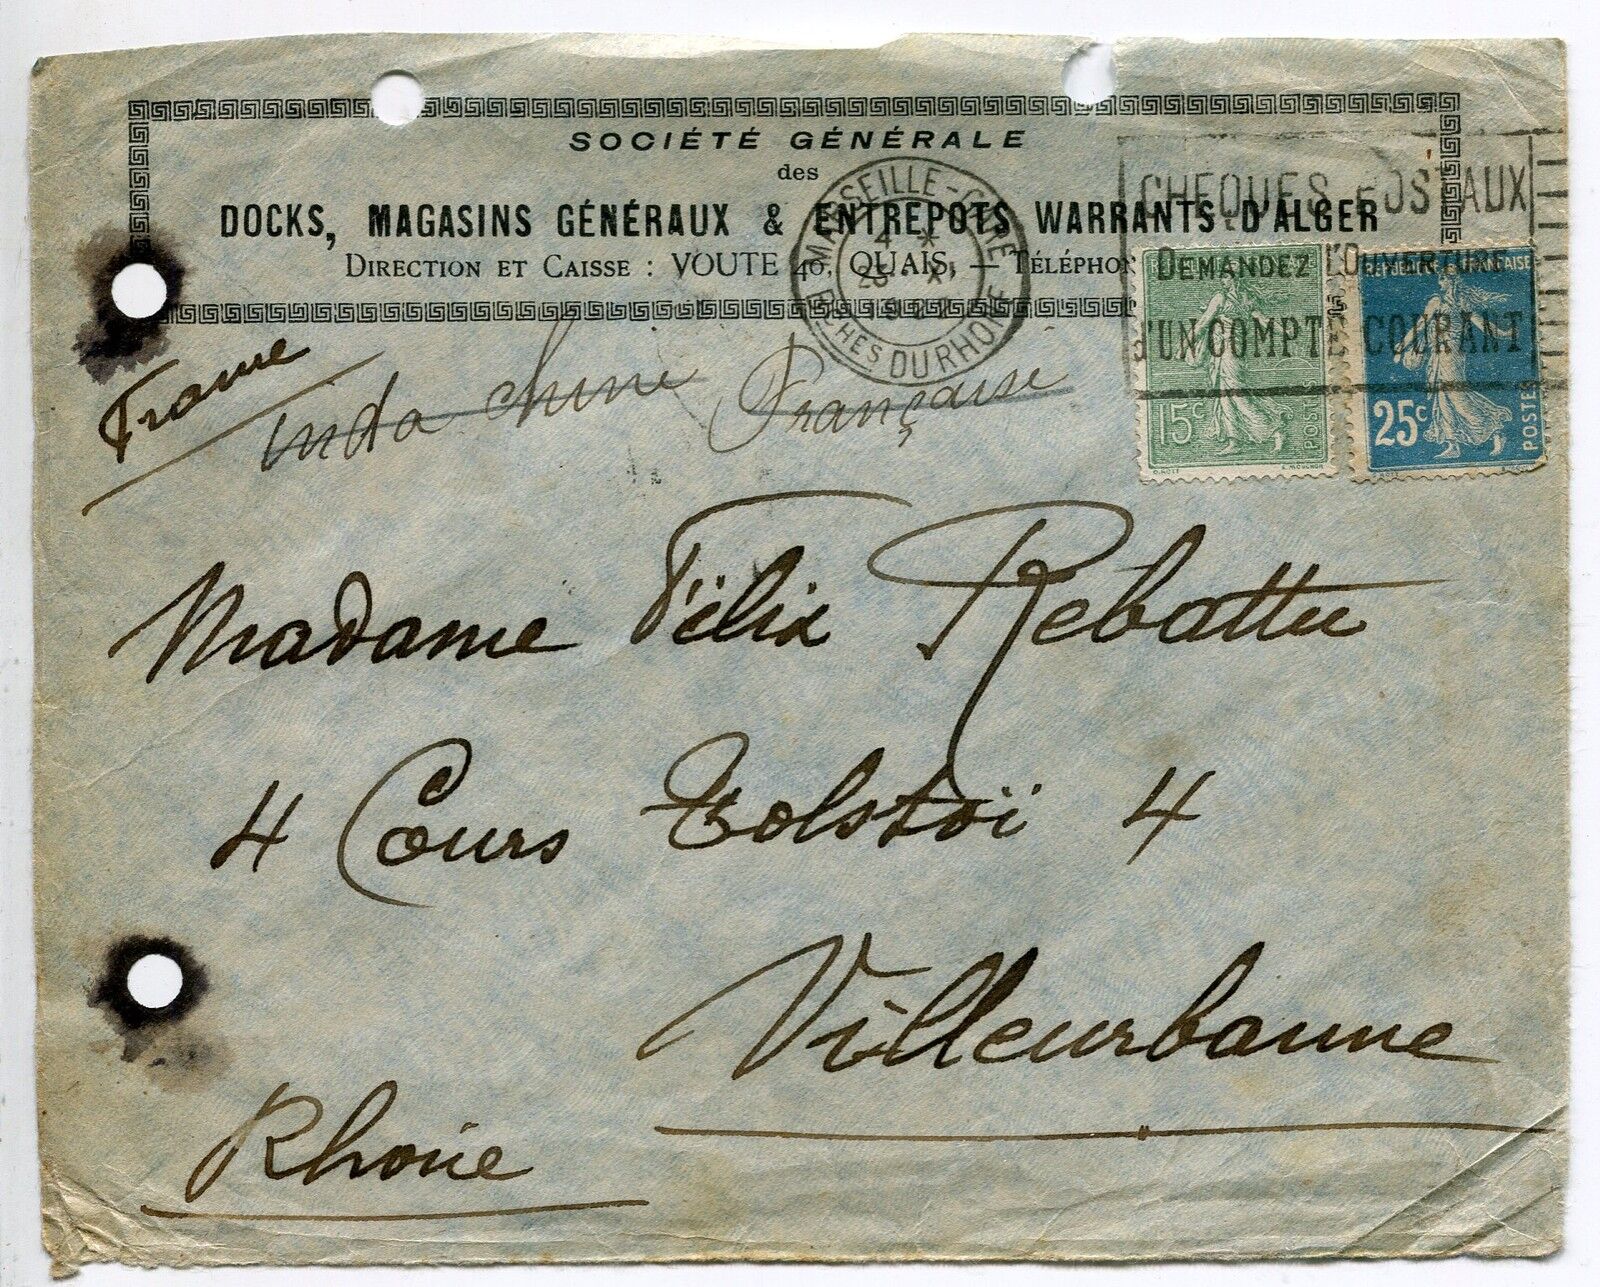 SOCIÉTÉ GÉNÉRALE
des
DOCKS, MAGASINS GÉNÉRAUX & ENTREPOTS WARRANTS D'ALGER
DIRECTION ET CAISSE : VOUTE 40, QUAIS, — TÉLÉPHO
MARSEILLE-GARE
4 *
B. CHES DU RHONE
CHEQUES POSTAUX
DEMANDEZ L'OUVERTURE
D'UN COMPTE COURANT
15c POSTES
O. ROTY L. MOUCHON
REPUBLIQUE FRANÇAISE
25c POSTES
France
indo chine Française
Madame Félix Rebattu
4 Cours Tolstoï 4
Villeurbanne
Rhône